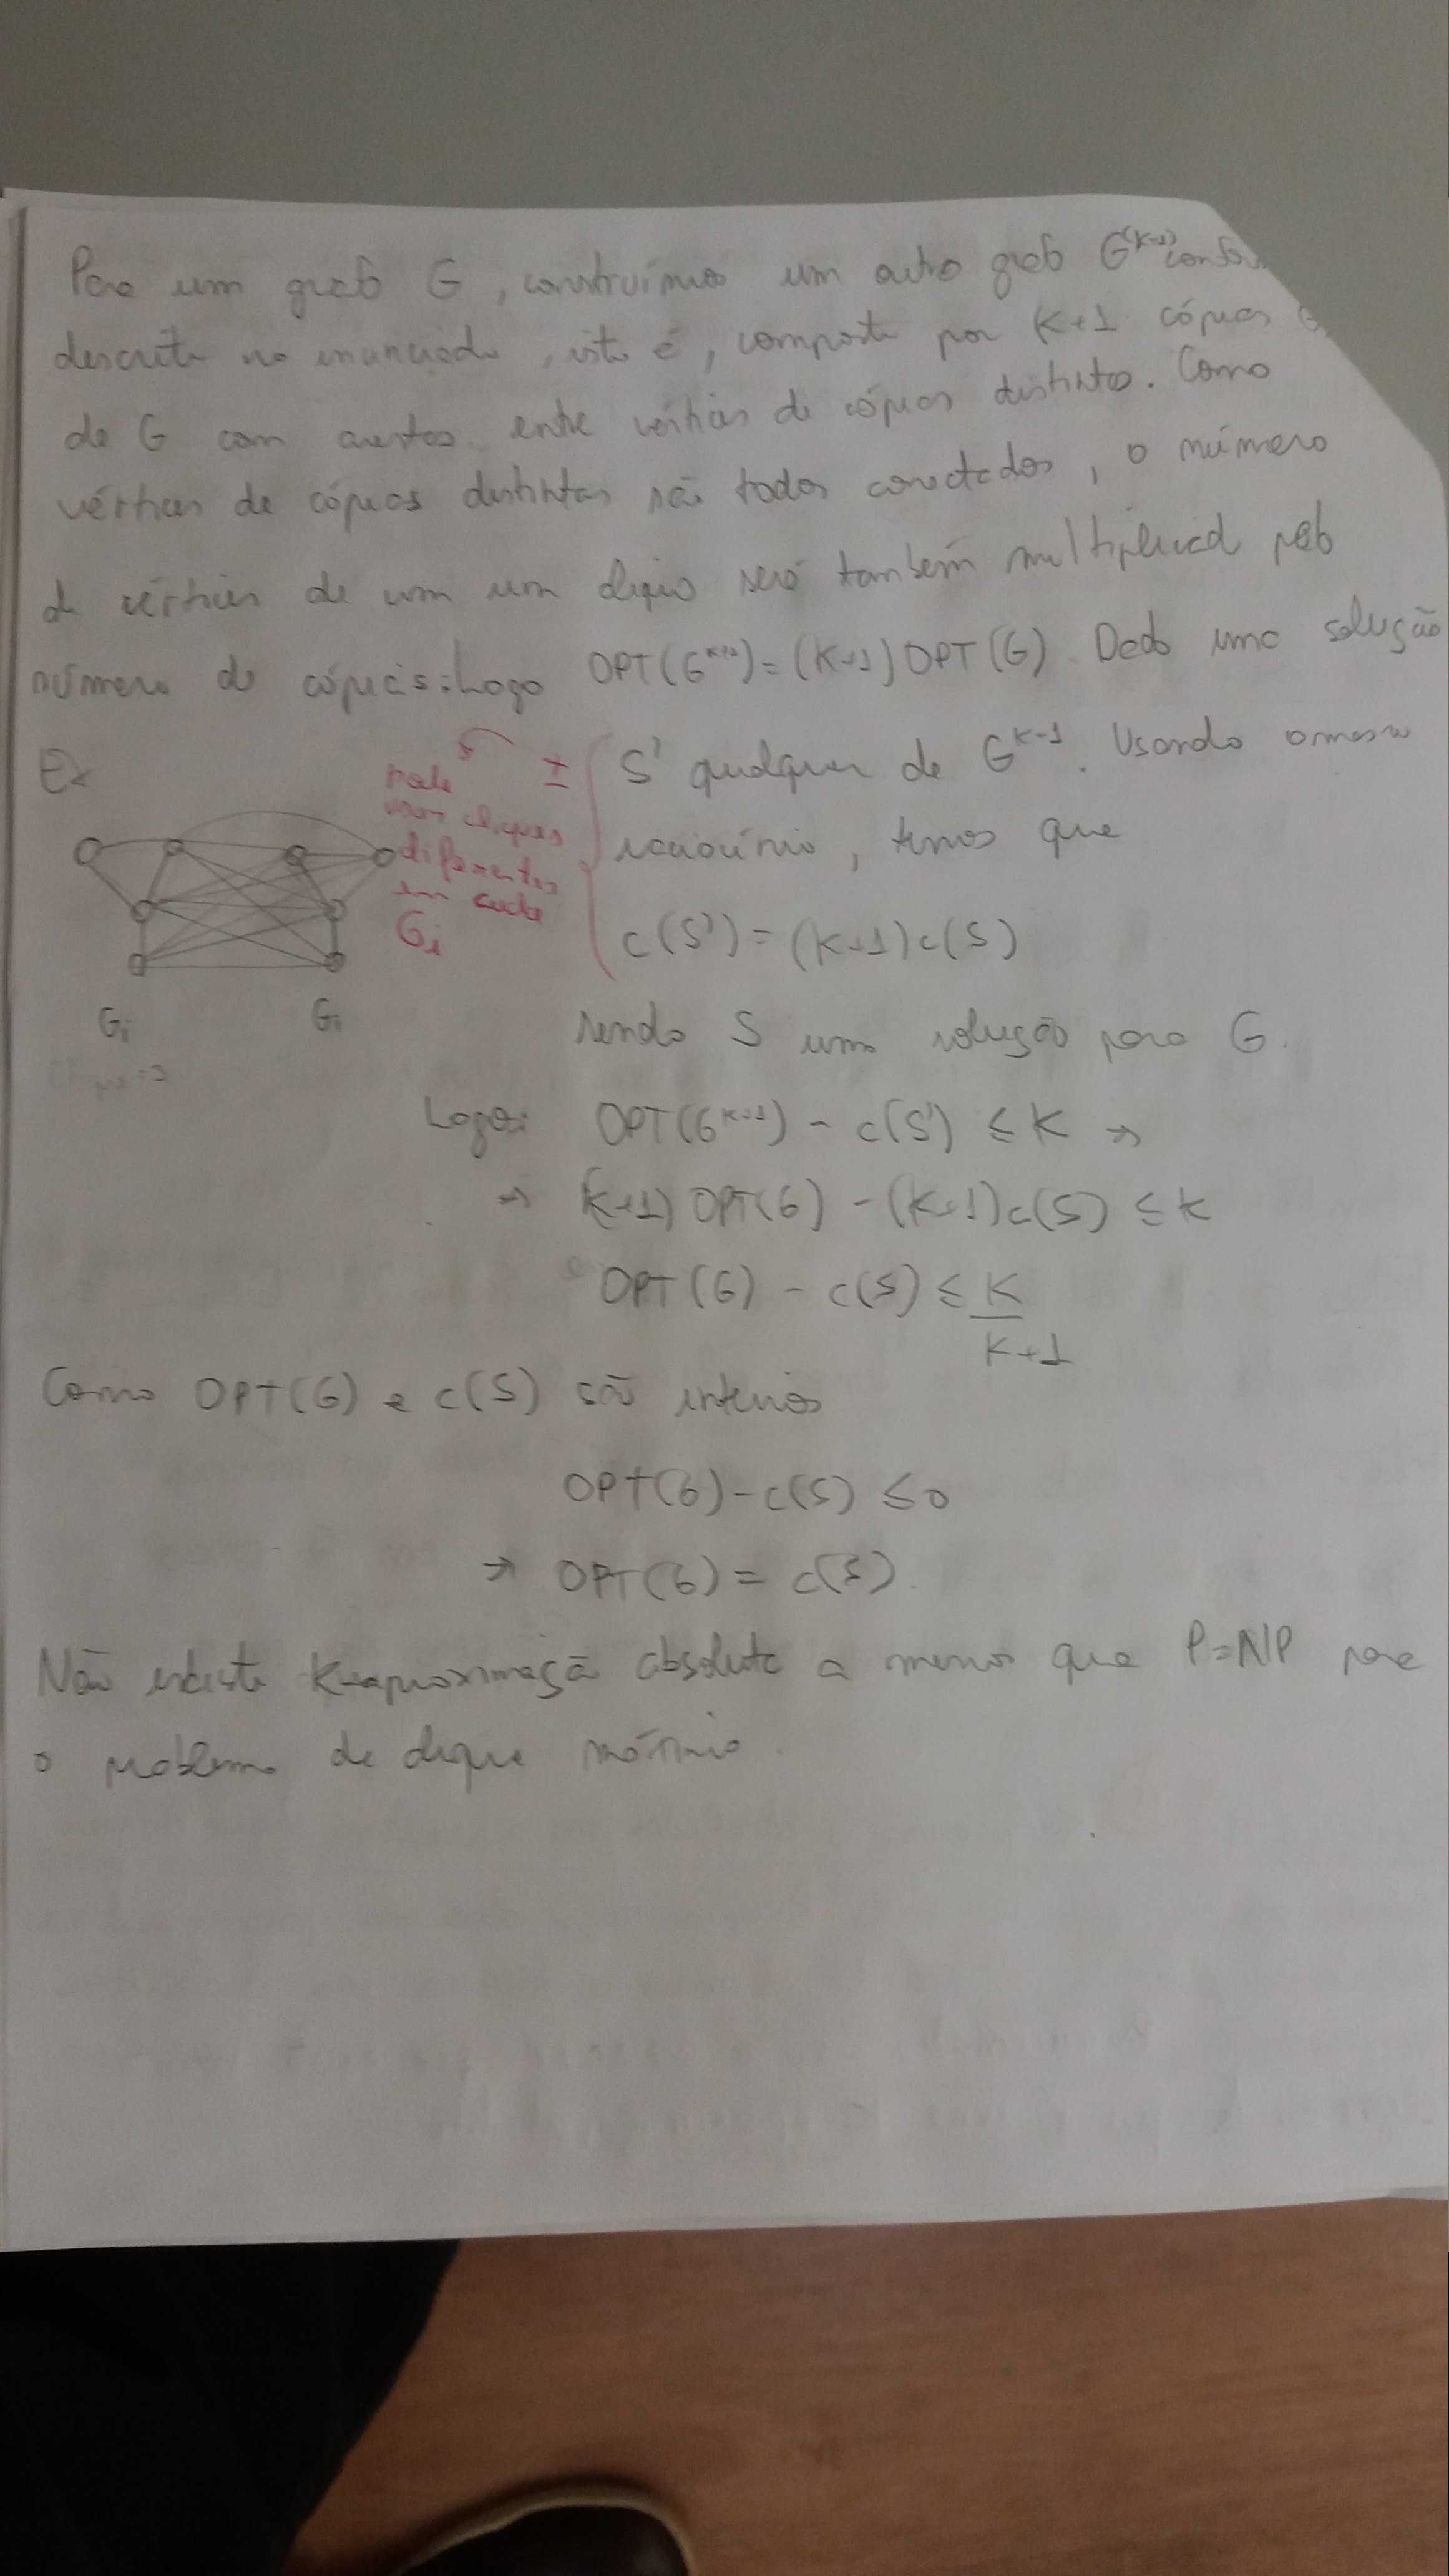 Para um grafo G, construímos um outro grafo G^(K+1)
descrito no enunciado, isto é, composto por K+1 cópias
de G com arestas entre vértices de cópias distintas. Como
vértices de cópias distintas são todos conectados, o número
de vértices de um um clique será também multiplicad pelo
número de cópias. Logo OPT(G^K+1) = (K+1) OPT(G). Dado uma solução
Ex
S' qualquer de G^K+1. Usando o mesmo
raciocínio, temos que
c(S') = (K+1)c(S)
±
pode
usar cliques
diferentes
em cada
Gi
Gi Gi
sendo S uma solução para G.
Logo: OPT(G^K+1) - c(S') ≤ K →
→ (K+1) OPT(G) - (K+1)c(S) ≤ K
OPT(G) - c(S) ≤ K
K+1
Como OPT(G) e c(S) são inteiros
OPT(G) - c(S) ≤ 0
→ OPT(G) = c(S)
Não existe K-aproximação absoluta a menos que P=NP para
o problema de clique máximo.